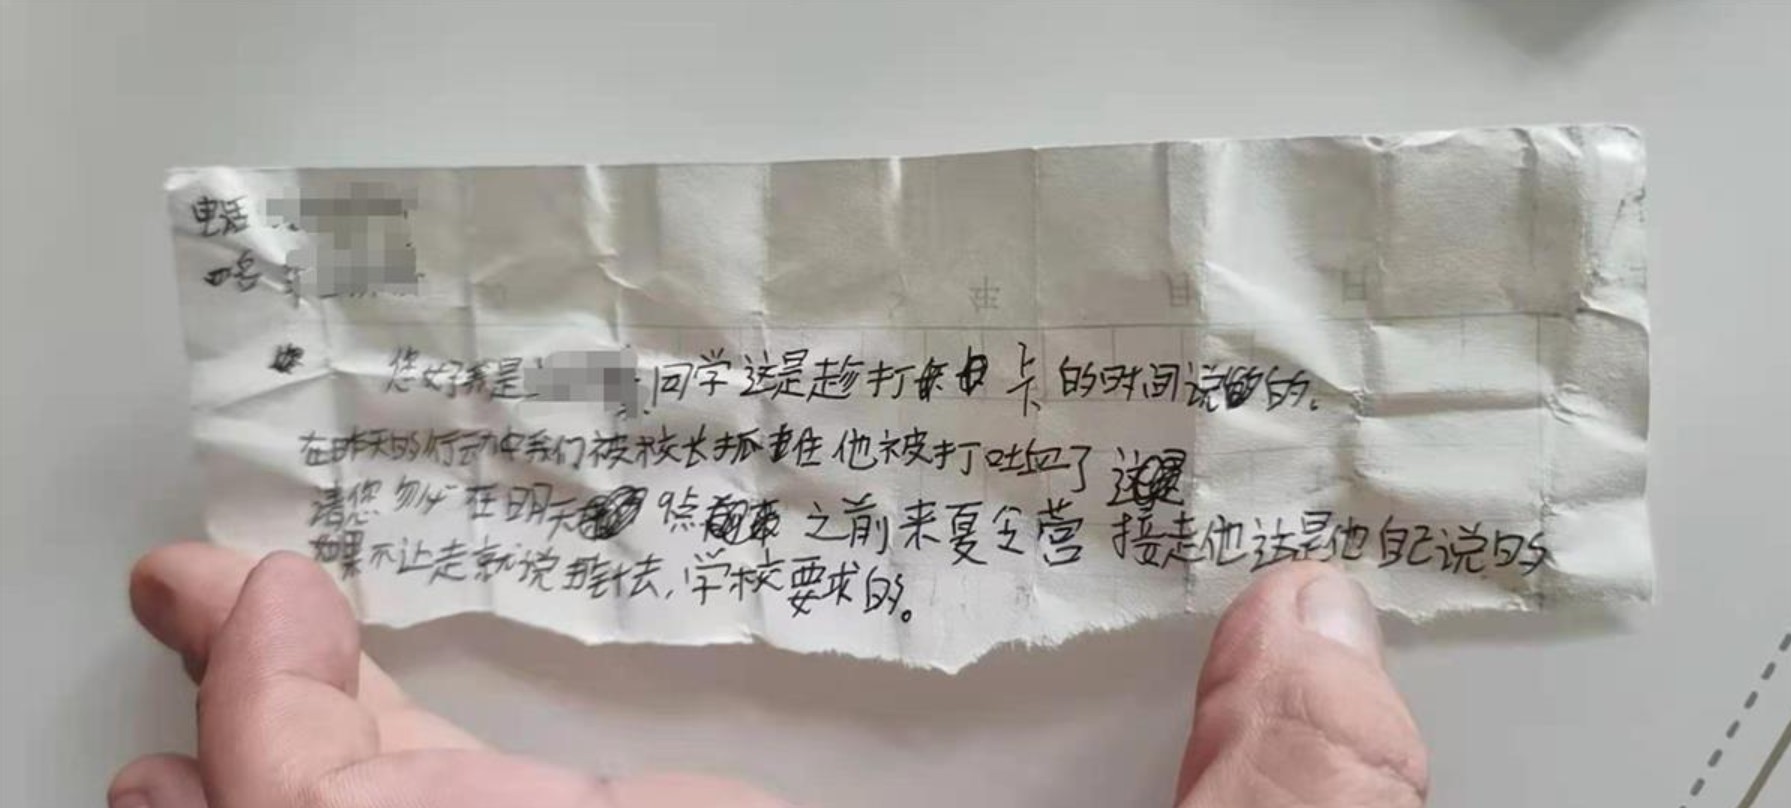 电话
姓名
年 月 日
您
您好我是 同学这是趁打卡的时间说的。
在昨天的行动中我们被校长抓住他被打吐血了
请您务必在明天9点之前来夏令营接走他这是他自己说的
如果不让走就说 去,学校要求的。